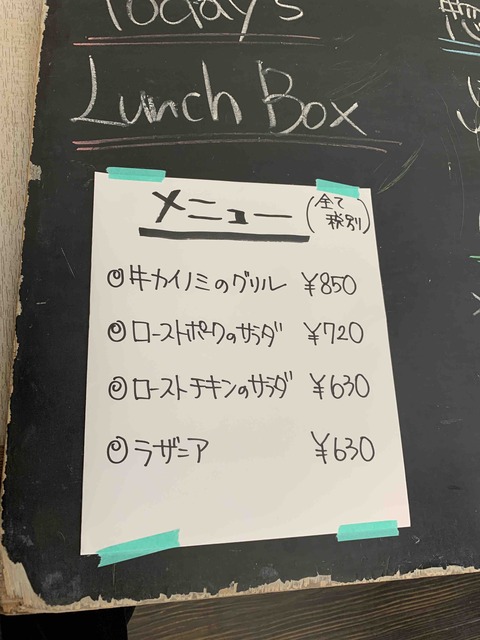 Today's
Lunch Box
メニュー (全て税別)
◎牛カイノミのグリル ¥850
◎ローストポークのサラダ ¥720
◎ローストチキンのサラダ ¥630
◎ラザニア ¥630